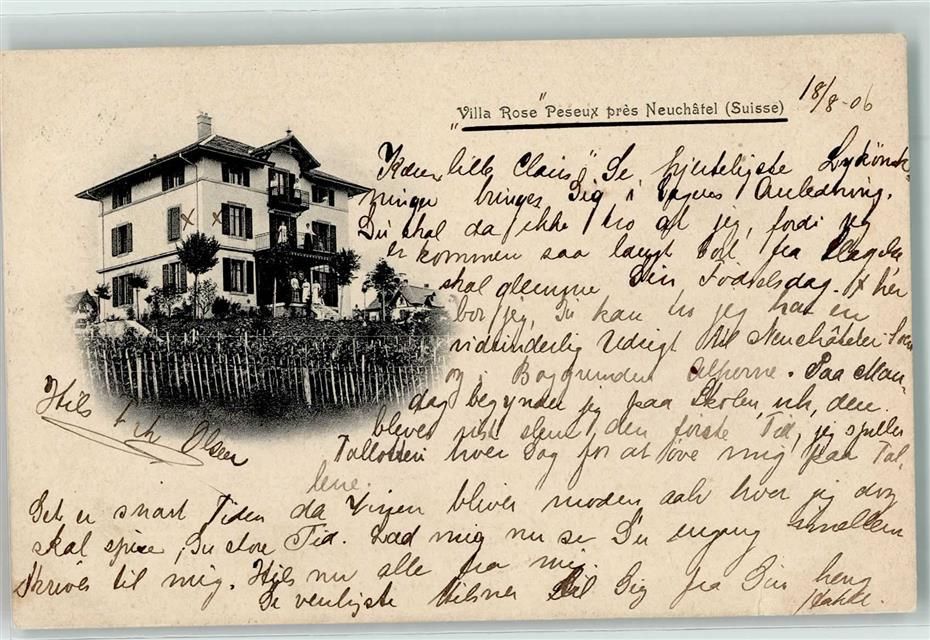 "Villa Rose" Peseux près Neuchâtel (Suisse)
18/8-06
Kære lille Claus! De hjerteligste Lykønsk-
ninger bringes Dig i Dagens Anledning.
Du skal da ikke tro at jeg, fordi jeg
er kommen saa langt bort fra
skal glemme Din Fødselsdag. X her
bor jeg, Du kan tro jeg har en
vidunderlig Udsigt til Neuchâteler Søen
og i Baggrunden Alperne. Paa Man-
dag begynder jeg paa Skolen, uh, den
bliver vist slem den første Tid, jeg spiller
Tallotteri hver Dag for at øve mig paa Tal-
lene.
Det er snart Tiden da Vinen bliver moden aah hvor jeg dog
skal spise, Du store Tid. Lad mig nu se Du engang imellem
skriver til mig. Hils nu alle fra mig.
De venligste Hilsner til Dig fra Din heng
Hils Frk Olsen